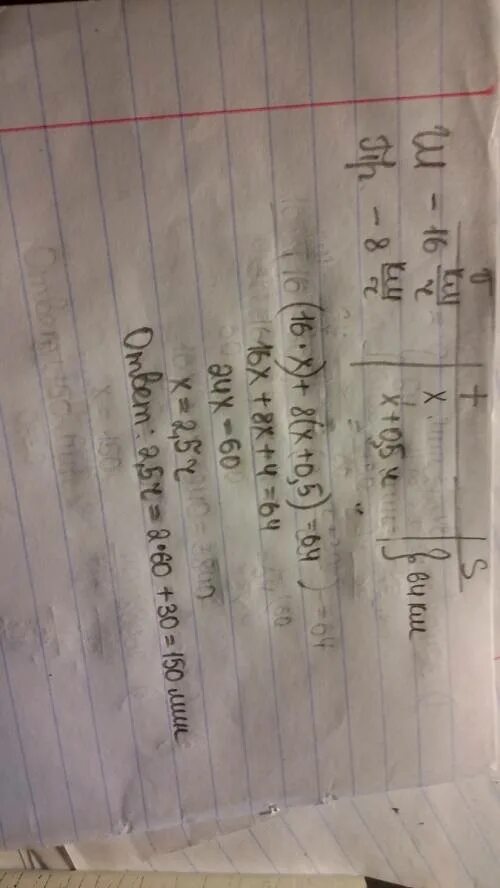 V t S
Ш - 16 км/ч x
Пр - 8 км/ч x+0,5 ч } 64 км
(16·x)+8(x+0,5)=64
16x+8x+4=64
24x=60
x=2,5 ч
Ответ: 2,5ч=2·60+30=150 мин